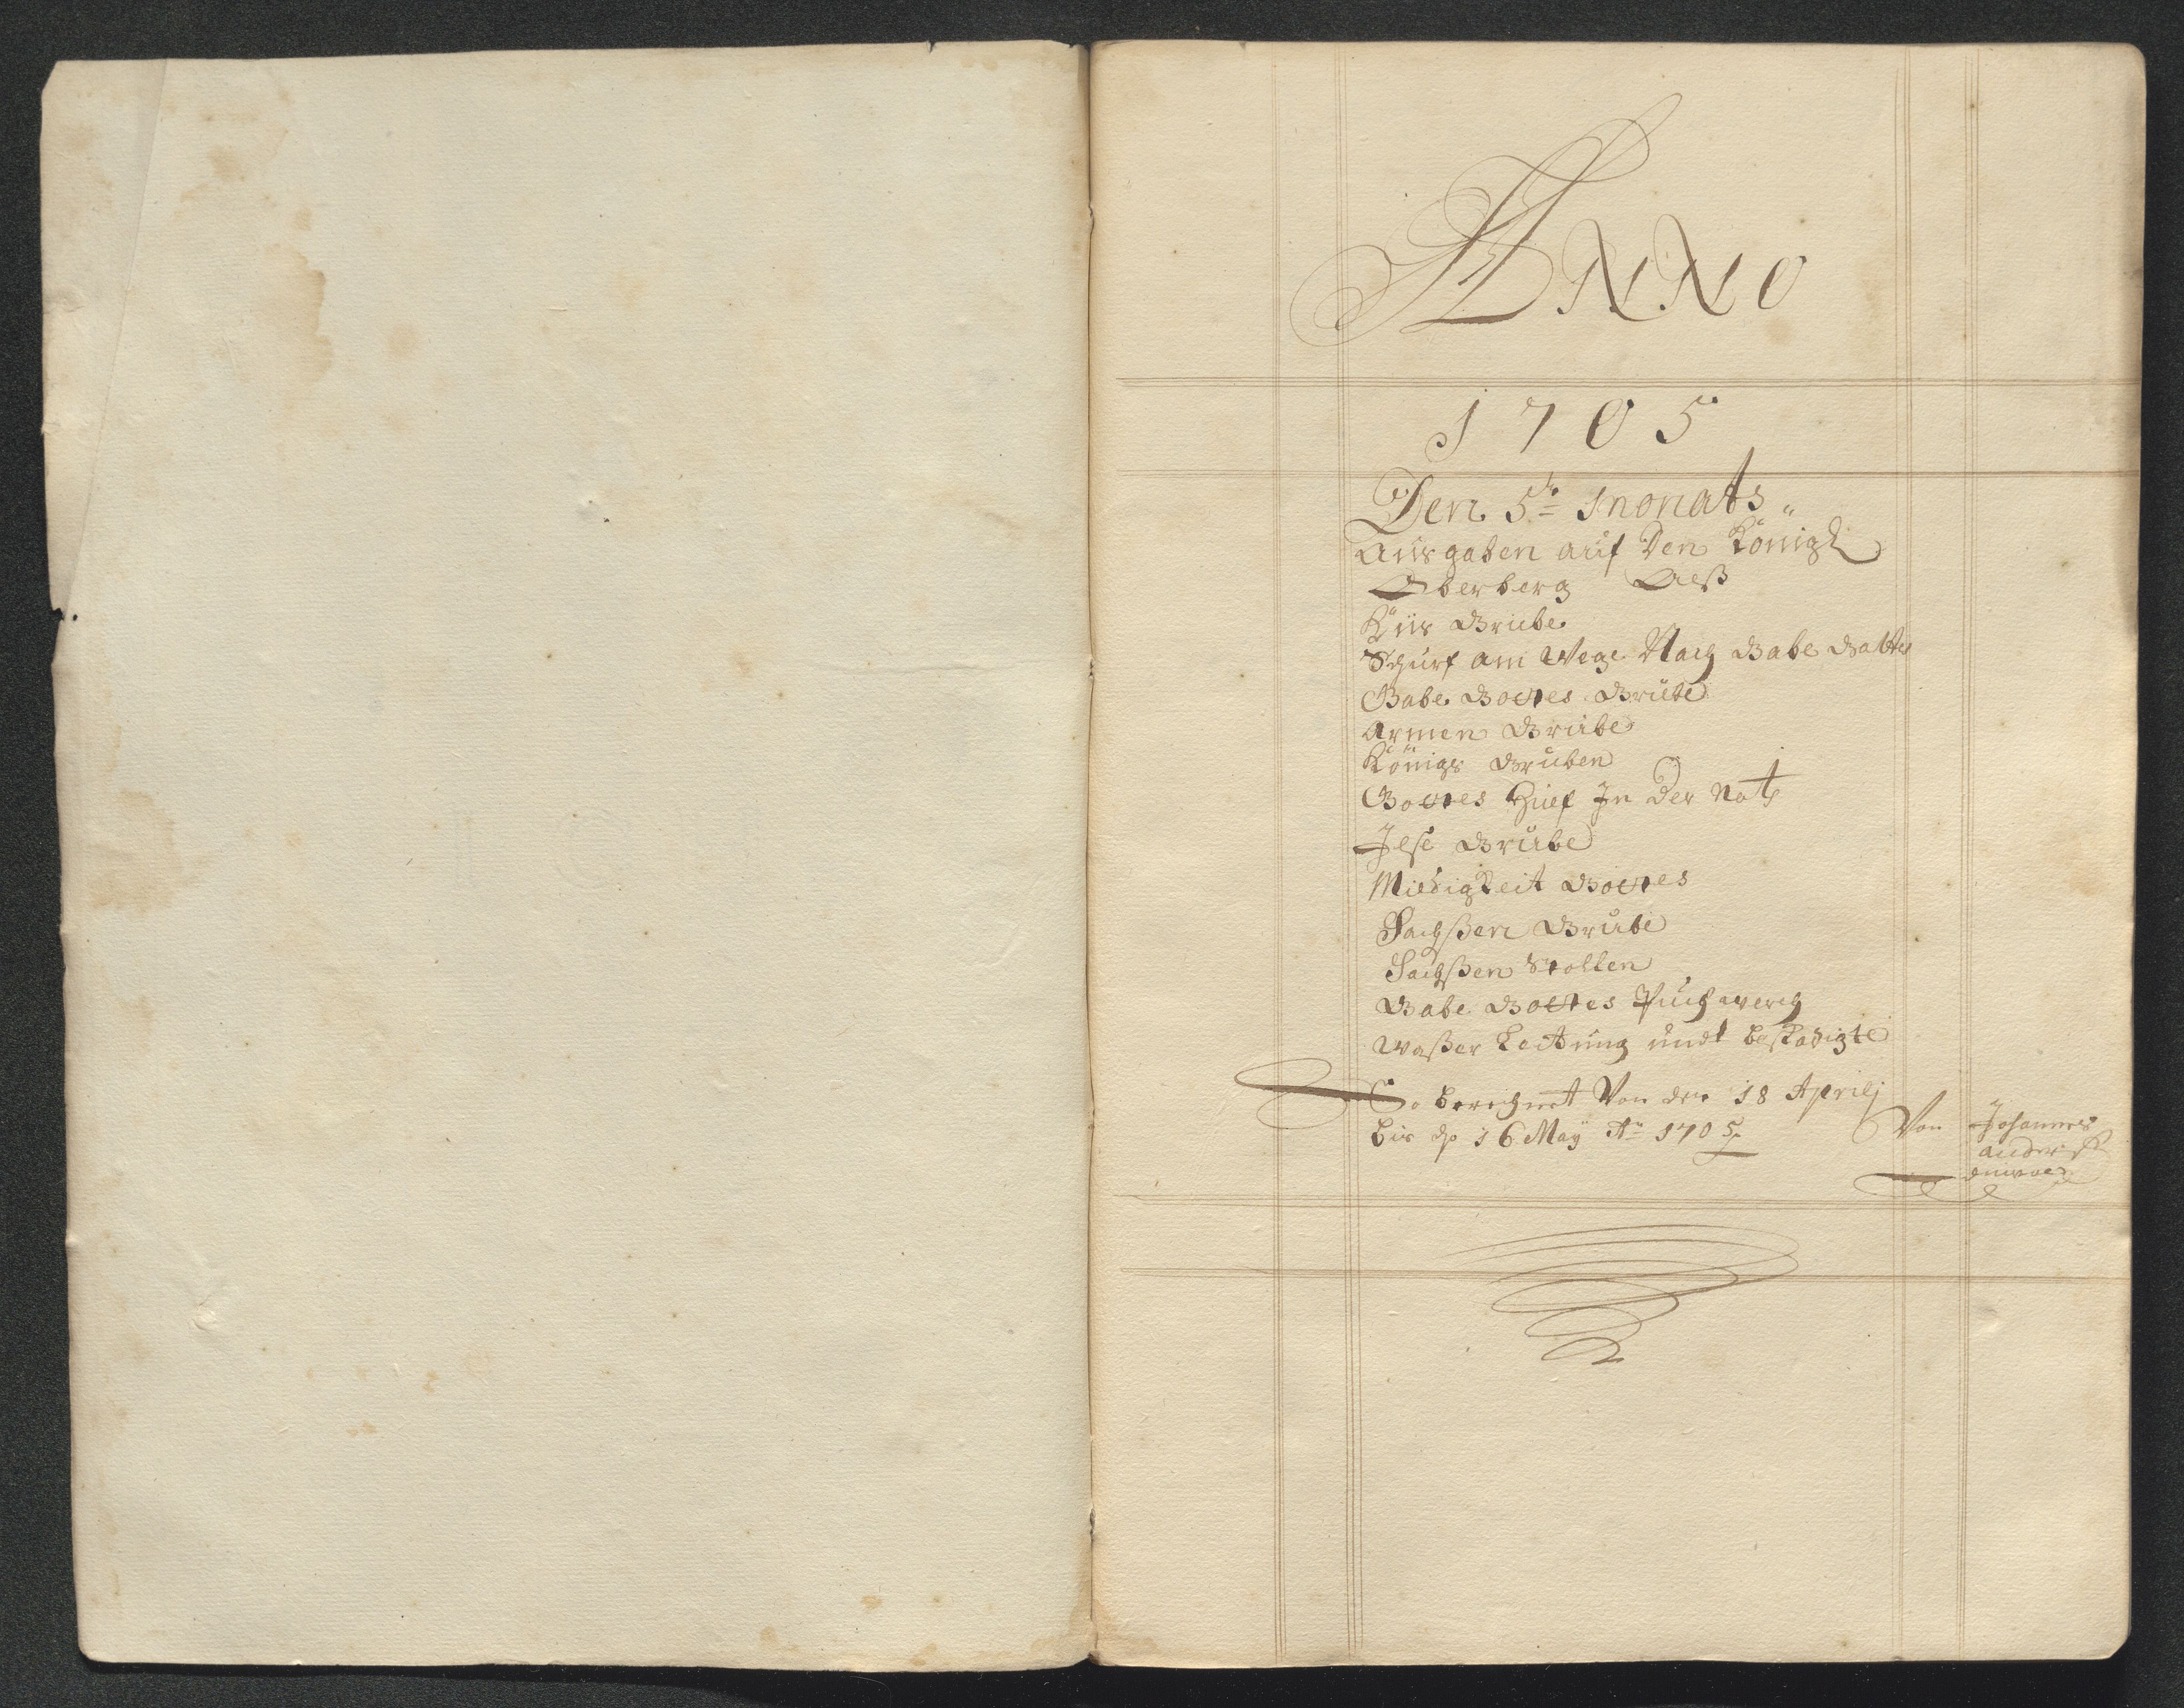 ANNO
1705
Den 5te monats
Ausgaben auf Den Königl
Oberberg Als
Küs Grube
Schurf am Wege Nach Gabe Gottes
Gabe Gottes Grube
Armen Grube
Königs Gruben
Gottes Hülf In Der Noth
Jlse Grube
Mildigkeit Gottes
Sachßen Grube
Sachßen Stollen
Gabe Gottes Puchwerch
Waßer Leitung undt
So berechnet Von den 18 Aprilj
bis d. 16 May Ao 1705
Von Johannes